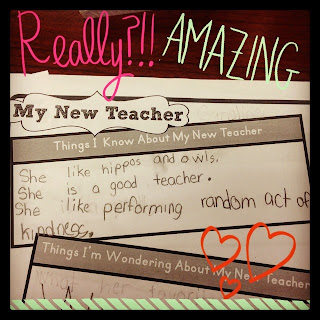 Really?!! AMAZING
My New Teacher
Things I Know About My New Teacher
She like hippos and owls.
She is a good teacher.
She like performing random act of
kindness.
Things I'm Wondering About My New Teacher
her favorite